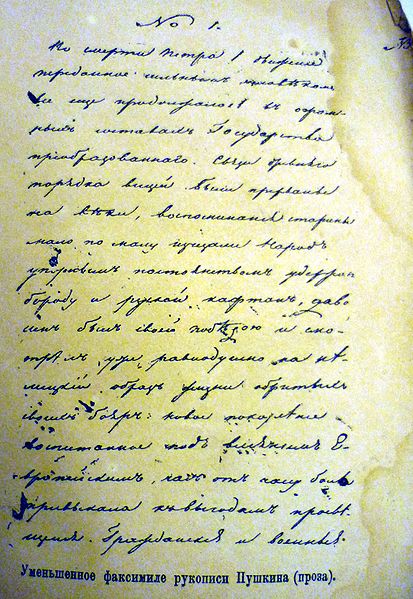 No 1.
По смерти Петра I движение
переданное сильнымъ человѣкомъ
все еще продолжалось въ огром-
ныхъ составахъ Государства
преобразованнаго. Связи древняго
порядка вещей были прерваны
на вѣки, воспоминанія старины
мало по малу исчезали. Народъ
упрямымъ постоянствомъ удержавъ
бороду и русской кафтанъ, дово-
ленъ былъ своей побѣдою и смо-
трѣлъ уже равнодушно на нѣ-
мецкій образъ жизни обритыхъ
своихъ бояръ: новое поколѣніе
воспитанное подъ вліяніемъ Е-
вропейскимъ, часъ отъ часу болѣе
привыкало къ выгодамъ просвѣ-
щенія. Гражданскіе и военные.
Уменьшенное факсимиле рукописи Пушкина (проза).